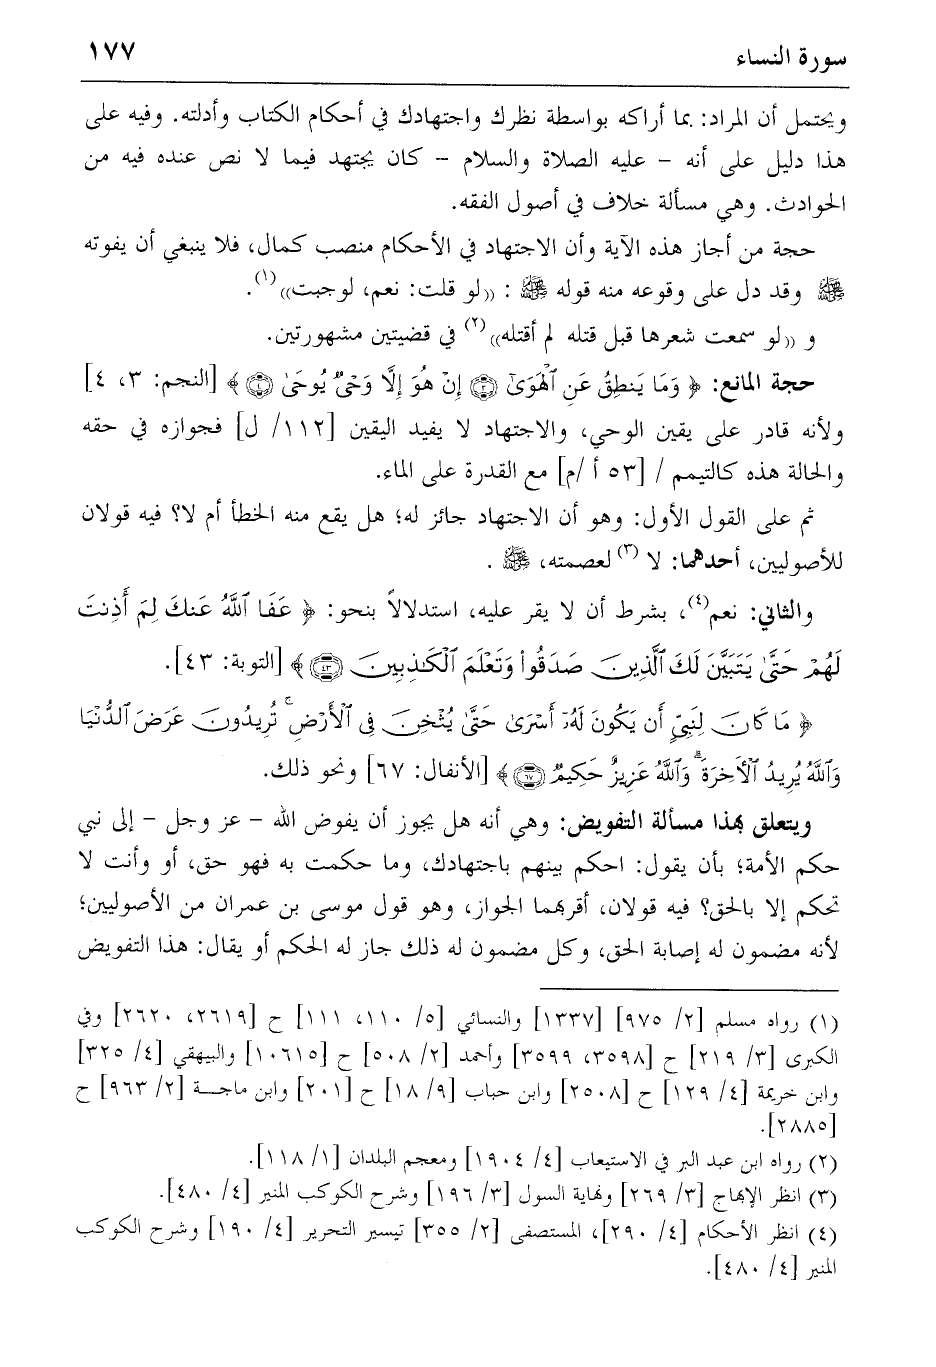 سورة النساء ١٧٧
ويحتمل أن المراد: بما أراكه بواسطة نظرك واجتهادك في أحكام الكتاب وأدلته. وفيه على
هذا دليل على أنه – عليه الصلاة والسلام – كان يجتهد فيما لا نص عنده فيه من
الحوادث. وهي مسألة خلاف في أصول الفقه.
حجة من أجاز هذه الآية وأن الاجتهاد في الأحكام منصب كمال، فلا ينبغي أن يفوته
ﷺ وقد دل على وقوعه منه قوله ﷺ : ((لو قلت: نعم، لوجبت))(١).
و ((لو سمعت شعرها قبل قتله لم أقتله))(٢) في قضيتين مشهورتين.
حجة المانع: ﴿ وَمَا يَنطِقُ عَنِ ٱلْهَوَىٰٓ ۝٣ إِنْ هُوَ إِلَّا وَحْىٌ يُوحَىٰ ۝٤ ﴾ [النجم: ٣، ٤]
ولأنه قادر على يقين الوحي، والاجتهاد لا يفيد اليقين [١١٢/ ل] فجوازه في حقه
والحالة هذه كالتيمم / [٥٣ أ /م] مع القدرة على الماء.
ثم على القول الأول: وهو أن الاجتهاد جائز له؛ هل يقع منه الخطأ أم لا؟ فيه قولان
للأصوليين، أحدهما: لا (٣) لعصمته، ﷺ .
والثاني: نعم(٤)، بشرط أن لا يقر عليه، استدلالاً بنحو: ﴿ عَفَا ٱللَّهُ عَنكَ لِمَ أَذِنتَ
لَهُمْ حَتَّىٰ يَتَبَيَّنَ لَكَ ٱلَّذِينَ صَدَقُوا۟ وَتَعْلَمَ ٱلْكَـٰذِبِينَ ۝٤٣ ﴾ [التوبة: ٤٣].
﴿ مَا كَانَ لِنَبِىٍّ أَن يَكُونَ لَهُۥٓ أَسْرَىٰ حَتَّىٰ يُثْخِنَ فِى ٱلْأَرْضِ ۚ تُرِيدُونَ عَرَضَ ٱلدُّنْيَا
وَٱللَّهُ يُرِيدُ ٱلْـَٔاخِرَةَ ۗ وَٱللَّهُ عَزِيزٌ حَكِيمٌ ۝٦٧ ﴾ [الأنفال: ٦٧] ونحو ذلك.
ويتعلق بهذا مسألة التفويض: وهي أنه هل يجوز أن يفوض الله – عز وجل – إلى نبي
حكم الأمة؛ بأن يقول: احكم بينهم باجتهادك، وما حكمت به فهو حق، أو وأنت لا
تحكم إلا بالحق؟ فيه قولان، أقربهما الجواز، وهو قول موسى بن عمران من الأصوليين؛
لأنه مضمون له إصابة الحق، وكل مضمون له ذلك جاز له الحكم أو يقال: هذا التفويض
(١) رواه مسلم [٢/ ٩٧٥] [١٣٣٧] والنسائي [٥/ ١١٠، ١١١] ح [٢٦١٩، ٢٦٢٠] وفي
الكبرى [٣/ ٢١٩] ح [٣٥٩٨، ٣٥٩٩] وأحمد [٢/ ٥٠٨] ح [١٠٦١٥] والبيهقي [٤/ ٣٢٥]
وابن خزيمة [٤/ ١٢٩] ح [٢٥٠٨] وابن حباب [٩/ ١٨] ح [٢٠١] وابن ماجـــة [٢/ ٩٦٣] ح
[٢٨٨٥].
(٢) رواه ابن عبد البر في الاستيعاب [٤/ ١٩٠٤] ومعجم البلدان [١/ ١١٨].
(٣) انظر الإبهاج [٣/ ٢٦٩] ونهاية السول [٣/ ١٩٦] وشرح الكوكب المنير [٤/ ٤٨٠].
(٤) انظر الأحكام [٤/ ٢٩٠]، المستصفى [٢/ ٣٥٥] تيسير التحرير [٤/ ١٩٠] وشرح الكوكب
المنير [٤/ ٤٨٠].